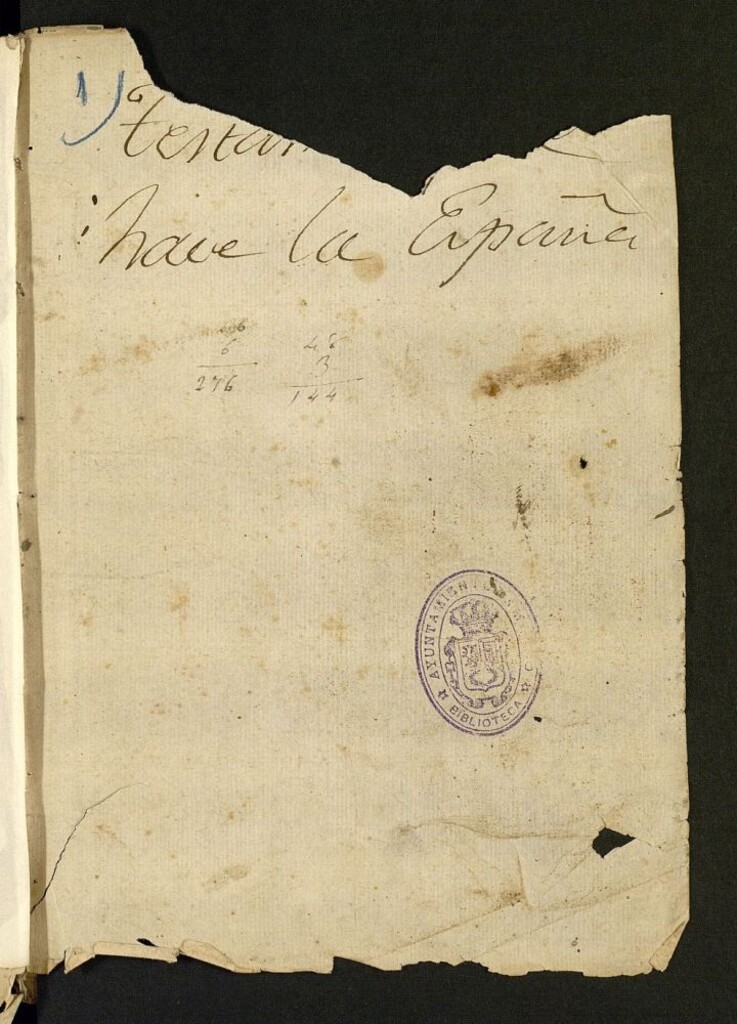 1)
testam
hace la España
6
276
48
3
144
AYUNTAMIENTO
BIBLIOTECA